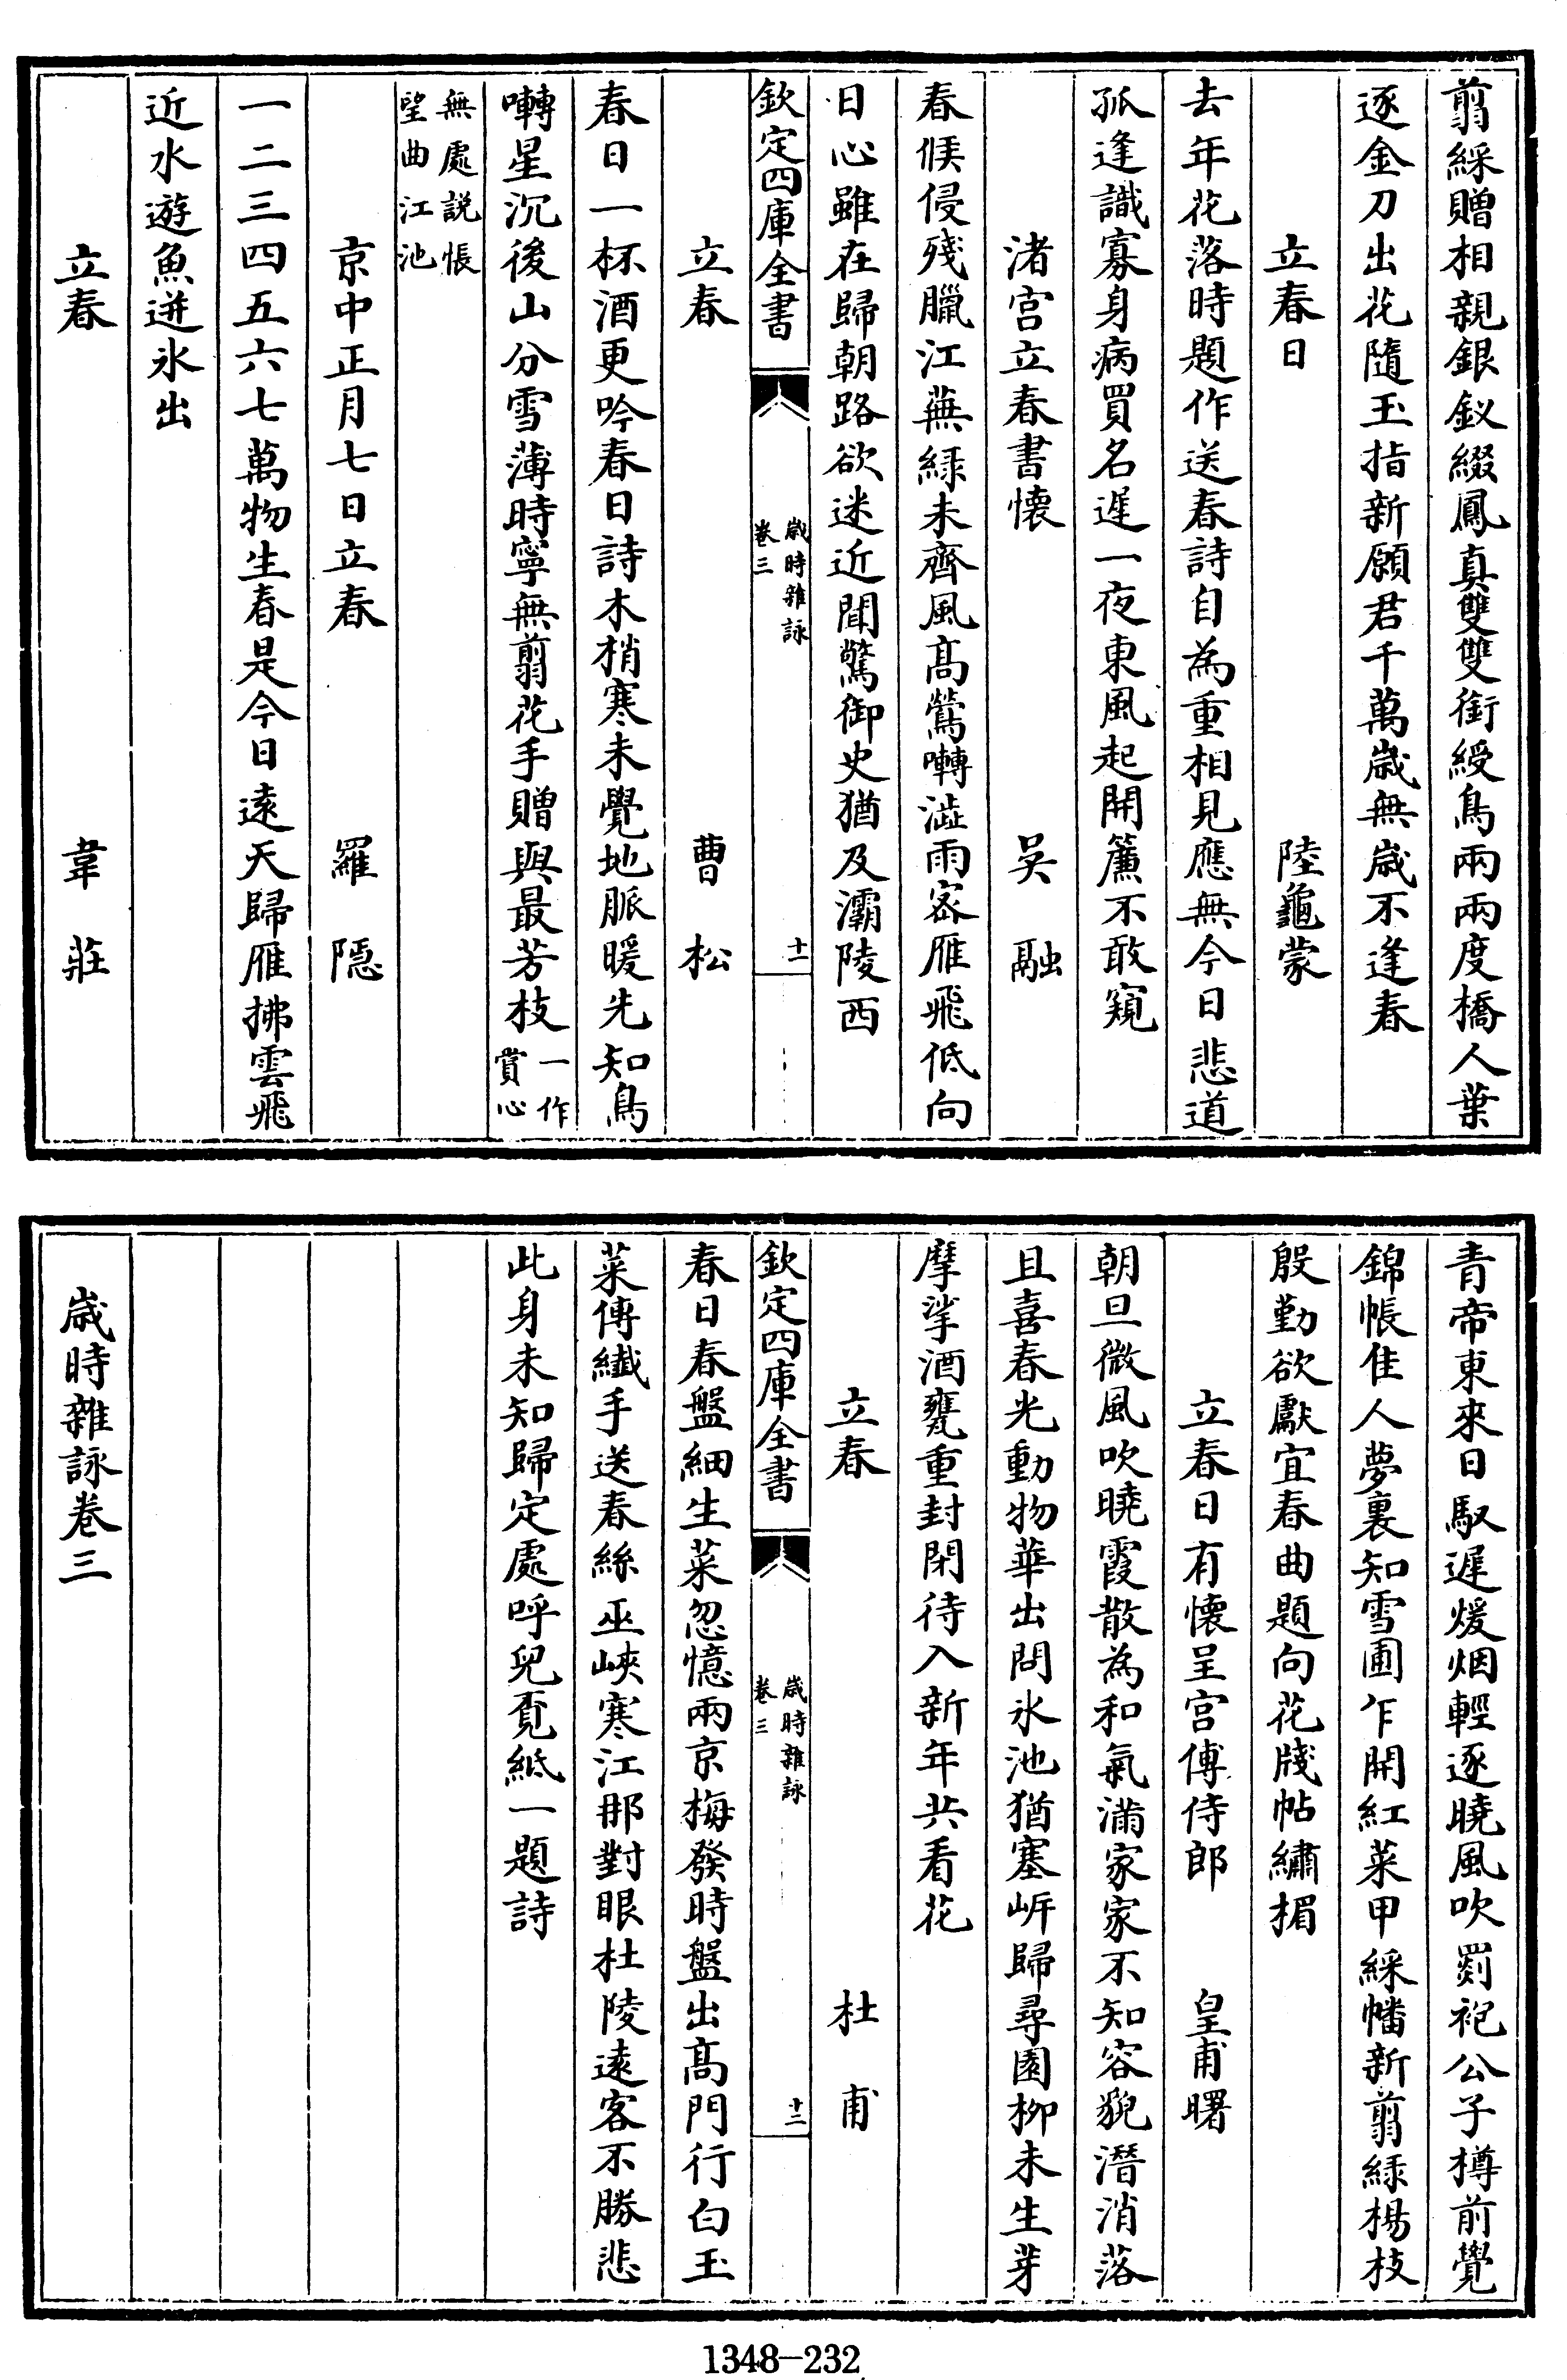 翦綵贈相親銀釵綴鳳真雙雙銜綬鳥兩兩度橋人葉
逐金刀出花隨玉指新願君千萬歳無歳不逢春
立春日 陸龜蒙
去年花落時題作送春詩自為重相見應無今日悲道
孤逢識寡身病買名遲一夜東風起開簾不敢窺
渚宫立春書懐 吴融
春候侵殘臘江蕪緑未齊風髙鶯囀澁雨宻雁飛低向
日心雖在歸朝路欲迷近聞驚御史猶及灞陵西
欽定四庫全書 歳時雜詠 卷三 十一
立春 曹松
春日一杯酒更吟春日詩木梢寒未覺地脈暖先知鳥
囀星沉後山分雪薄時寧無翦花手贈與最芳枝 一作賞心
無處説悵望曲江池
京中正月七日立春 羅隠
一二三四五六七萬物生春是今日逺天歸雁拂雲飛
近水遊魚迸氷出
立春 韋莊
青帝東來日馭遲煖烟輕逐曉風吹罽袍公子樽前覺
錦帳佳人夢裏知雪圃乍開紅菜甲綵幡新翦緑楊枝
殷勤欲獻宜春曲題向花牋帖繡楣
立春日有懐呈宫傅侍郎 皇甫曙
朝旦微風吹曉霞散為和氣滿家家不知容貌潛消落
且喜春光動物華出問氷池猶塞岸歸尋園柳未生芽
摩挲酒甕重封閉待入新年共看花
立春 杜甫
欽定四庫全書 歳時雜詠 卷三 十二
春日春盤細生菜忽憶兩京梅發時盤出髙門行白玉
菜傳纎手送春絲巫峽寒江那對眼杜陵逺客不勝悲
此身未知歸定處呼兒覔紙一題詩
歳時雜詠卷三
1348-232